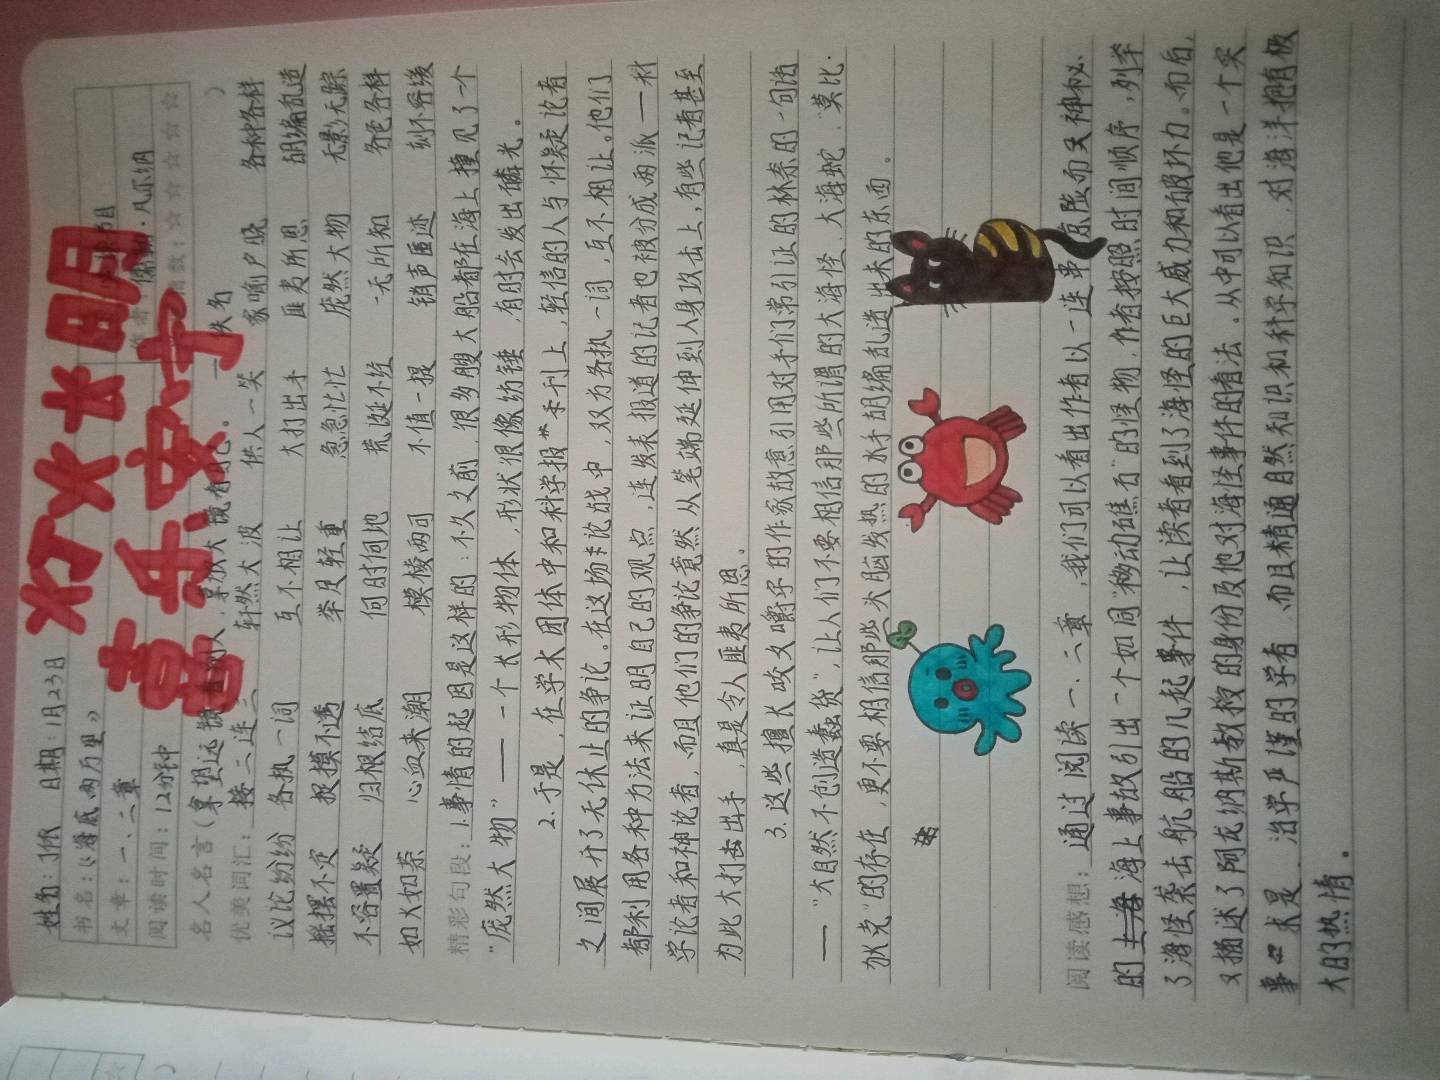 灯火长明
喜乐安宁
姓名:丁依 日期:1月23日
书名:《海底两万里》
作者:儒勒·凡尔纳
文章:一、二章
阅读时间:12分钟
数:☆☆☆☆☆☆
名人名言(拿望远镜看别人,拿放大镜看自己。——佚名)
优美词汇:接二连三 轩然大波 供人一笑 家喻户晓 各种各样
议论纷纷 各执一词 互不相让 大打出手 匪夷所思 胡编乱造
摇摆不定 捉摸不透 举足轻重 急急忙忙 庞然大物 无影无踪
不容置疑 归根结底 何时何地 荒诞不经 一无所知 各色各样
如火如荼 心血来潮 模棱两可 不值一提 销声匿迹 刻不容缓
精彩句段:1.事情的起因是这样的:不久之前,很多艘大船都在海上撞见了一个
“庞然大物”——一个长形物体,形状很像纺锤,有时会发出磷光。
2.于是,在学术团体中和科学报刊上,轻信的人与怀疑论者
之间展开了无休止的争论。在这场论战中,双方各执一词,互不相让。他们
都利用各种方法来证明自己的观点,连发表报道的记者也被分成两派——科
学论者和神论者,而且他们的争论竟然从笔端延伸到人身攻击上,有些记者甚至
为此大打出手,真是令人匪夷所思。
3.这些擅长咬文嚼字的作家故意引用对手们常引证的林奈的一句话
——“大自然不创造蠢货”,让人们不要相信那些所谓的大海怪、大海蛇、“莫比·
狄克”的存在,更不要相信那些头脑发热的水手胡编乱造出来的东西。
阅读感想:通过阅读一、二章,我们可以看出作者以一连串惊险而又神秘
的海上事故引出一个如同“移动礁石”的怪物,作者按照时间顺序,列举
了海怪袭击航船的几起事件,让读者看到了海怪的巨大威力和破坏力。而后,
又描述了阿龙纳斯教授的身份及他对海怪事件的看法,从中可以看出他是一个实
事求是、治学严谨的学者,而且精通自然知识和科学知识,对海洋拥有极
大的热情。